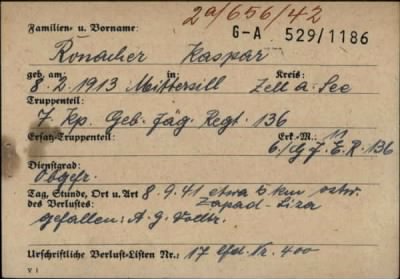 2a/656/42
Familien- u. Vorname: G-A 529/1186
Ronacher Kaspar
geb. am: in: Kreis:
8.2.1913 Mittersill Zell a. See
Truppenteil:
7. Kp. Geb. Jäg. Regt. 136
Ersatz-Truppenteil: Erk.-M.:
136
Dienstgrad:
Obgefr.
Tag, Stunde, Ort u. Art 8.9.41 etwa 6 km ostw.
des Verlustes: Zapad-Liza
gefallen: A. G.
Urschriftliche Verlust-Listen Nr.: 17 lfd. Nr. 400
V 1